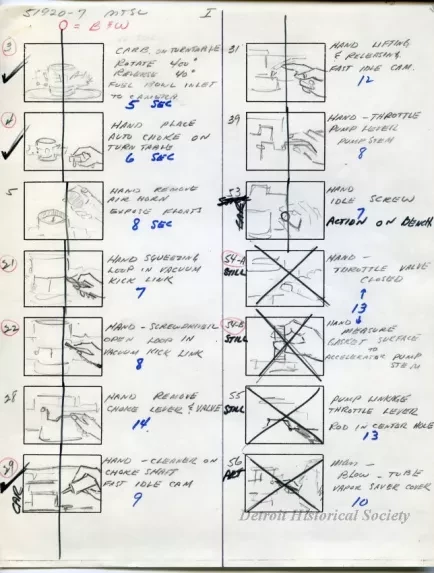 51920-7 MTSL I
O = B & W
3
CARB. ON TURNTABLE
ROTATE 400°
RELEASE 40°
FUEL BOWL INLET
TO CAMERA
5 SEC
4
HAND PLACE
AUTO CHOKE ON
TURN TABLE
6 SEC
5
HAND REMOVE
AIR HORN
EXPOSE FLOATS
8 SEC
21
HAND SQUEEZING
LOOP IN VACUUM
KICK LINK
7
22
HAND - SCREWDRIVER
OPEN LOOP IN
VACUUM KICK LINK
8
28
HAND REMOVE
CHOKE LEVER & VALVE
14
29
CAR
HAND - CLEANER ON
CHOKE SHAFT
FAST IDLE CAM
9
31
HAND LIFTING
& RELEASING
FAST IDLE CAM.
12
39
HAND - THROTTLE
PUMP LEVER
PUMP STEM
8
53
HAND
IDLE SCREW
7
ACTION ON BENCH
54-A
STILL
HAND -
THROTTLE VALVE
CLOSED
↑
13
↓
54-B
STILL
HAND
MEASURE
GASKET SURFACE
TO
ACCELERATOR PUMP
STEM
55
STILL
PUMP LINKAGE
THROTTLE LEVER
ROD IN CENTER HOLE
13
56
ART
BLOW - TUBE
VAPOR SAVER COVER
10
Detroit Historical Society